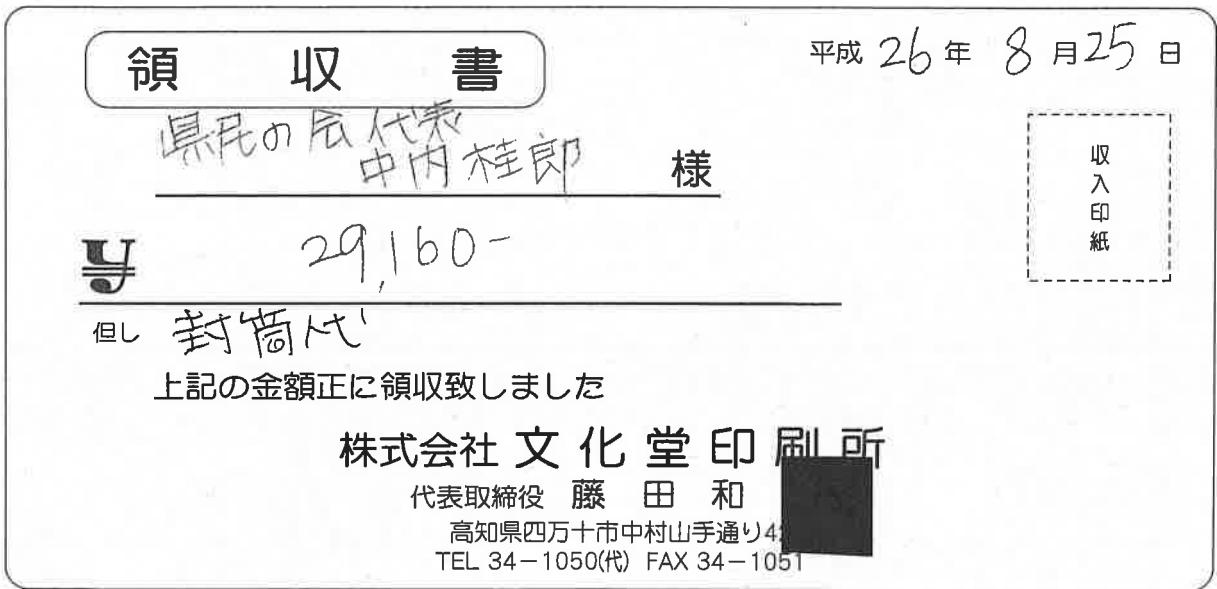 領収書
平成 26 年 8 月 25 日
県民の会代表
中内桂郎 様
収入印紙
¥ 29,160-
但し 封筒代
上記の金額正に領収致しました
株式会社 文化堂印刷所
代表取締役 藤田和
高知県四万十市中村山手通り4
TEL 34-1050(代) FAX 34-1051